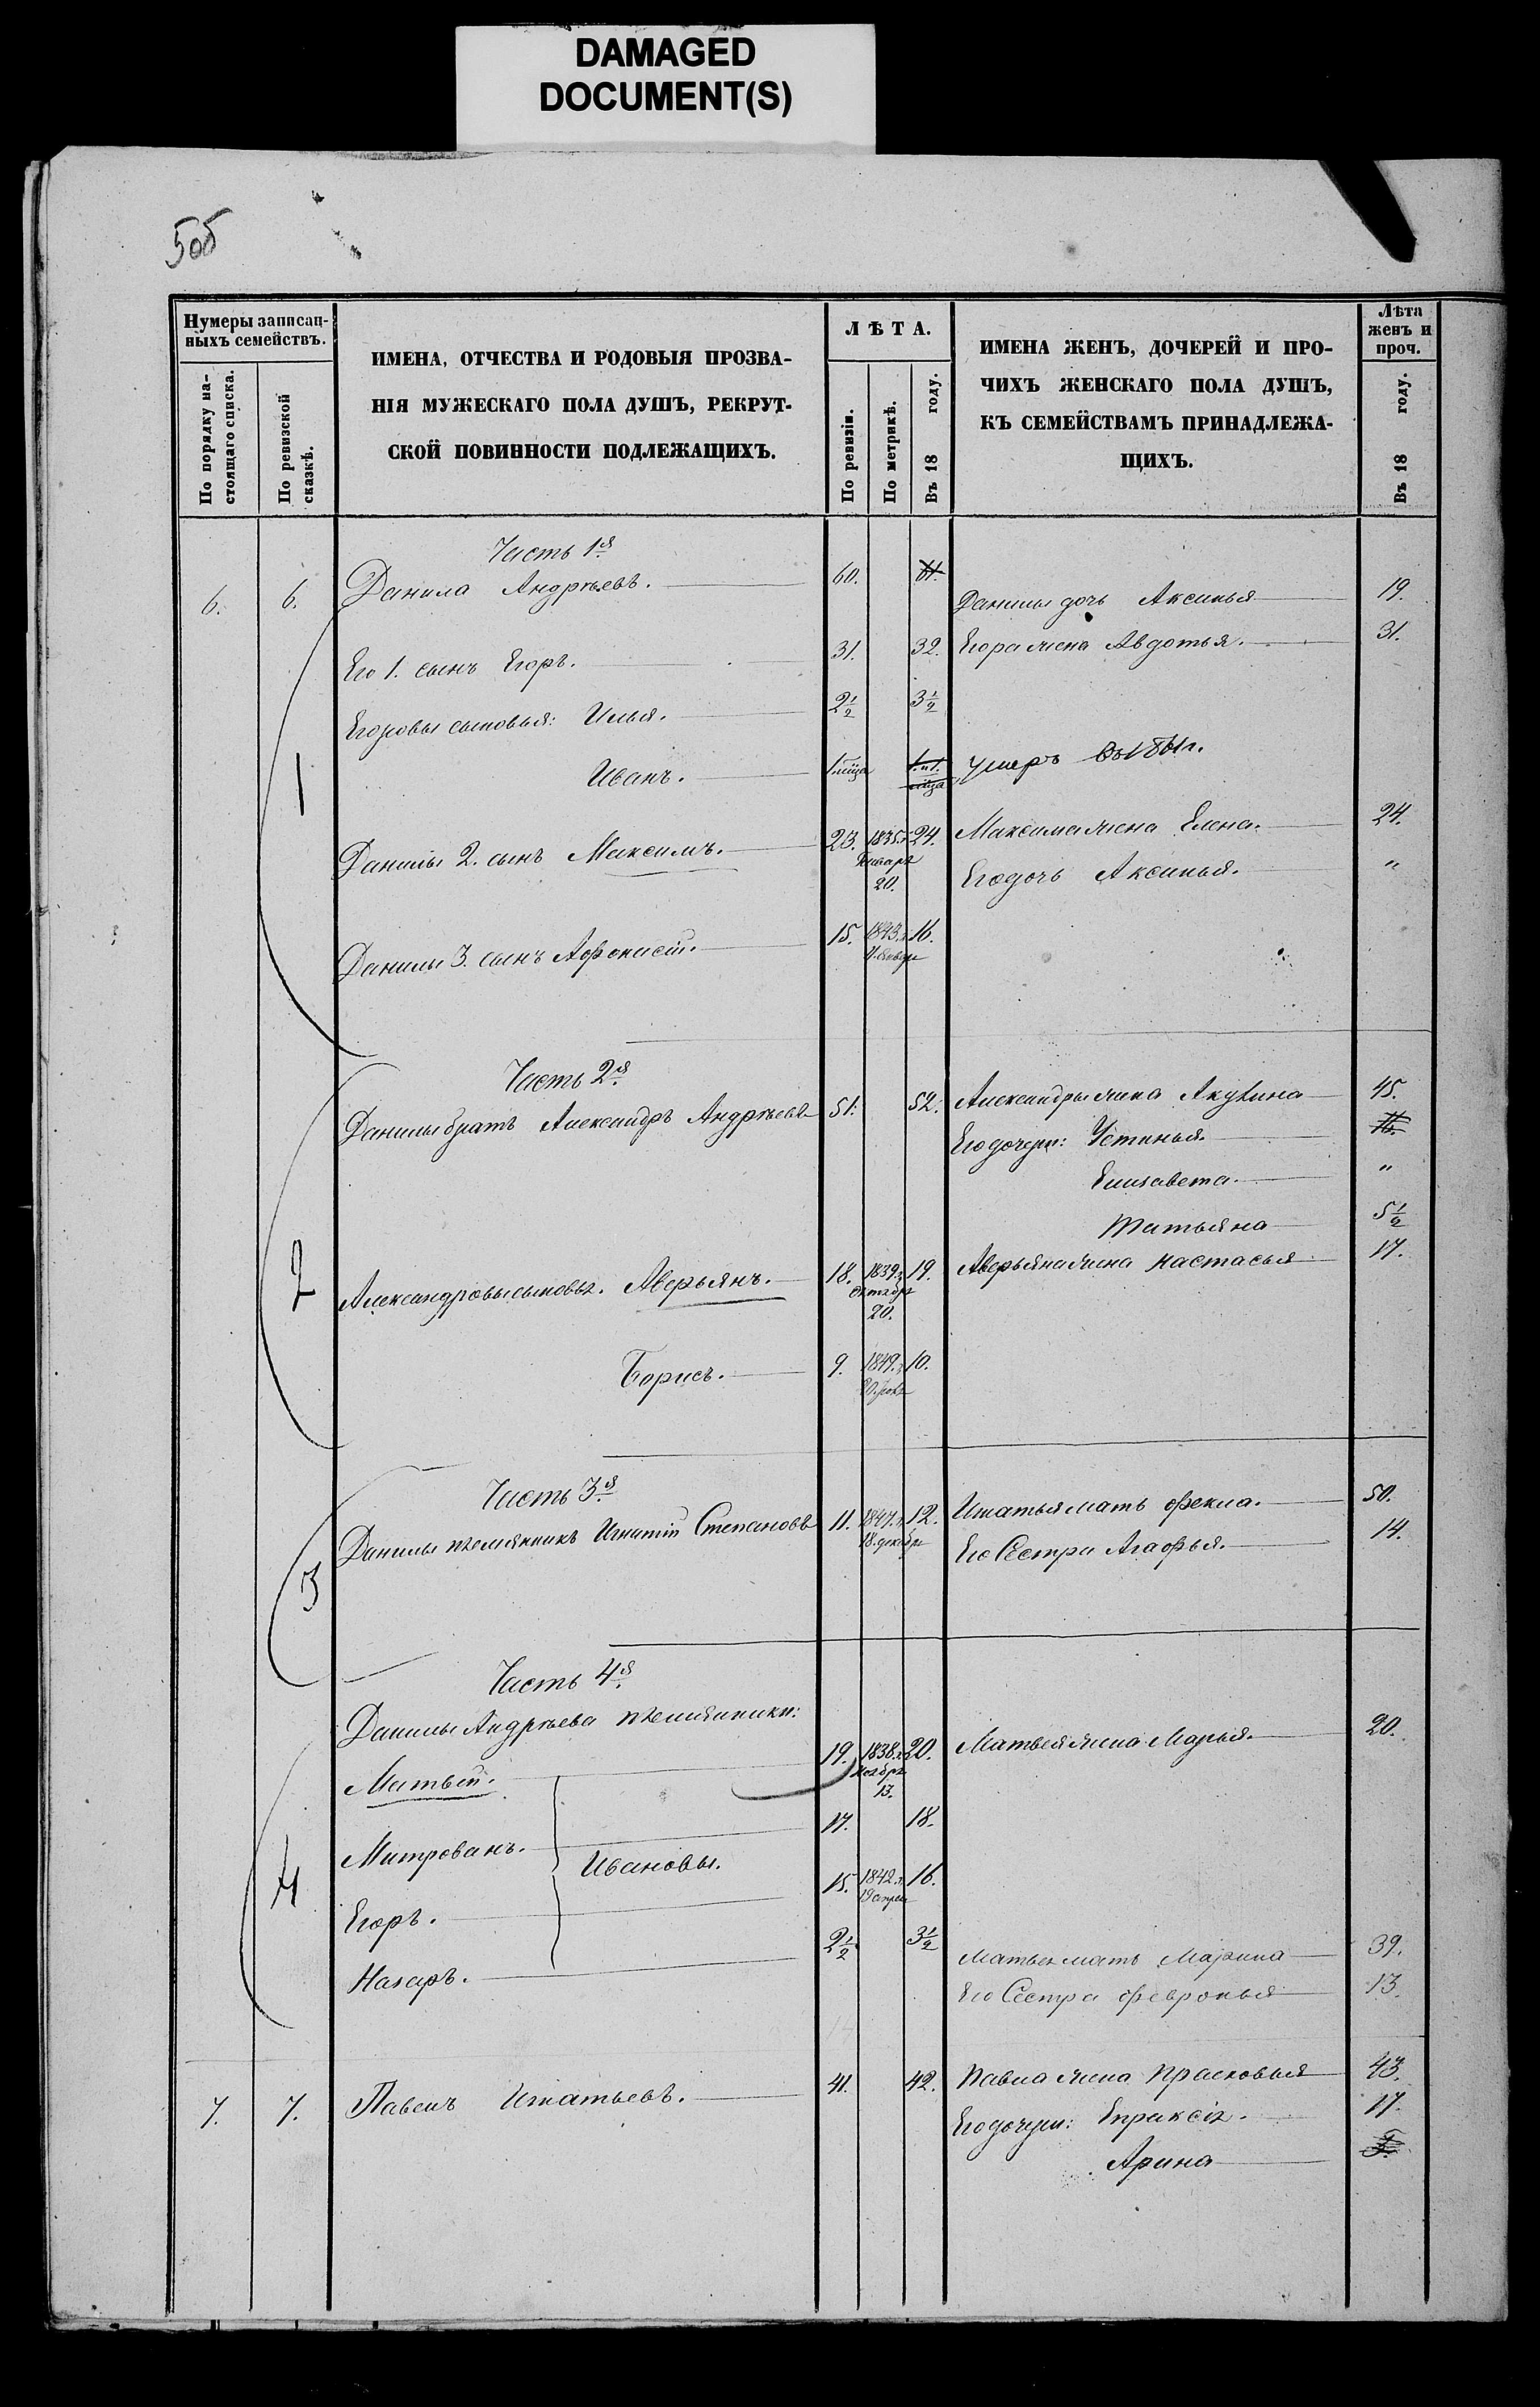 DAMAGED
DOCUMENT(S)
5об
Нумеры записан-
ныхъ семействъ.
По порядку на-
стоящаго списка.
По ревизской
сказкѣ.
ИМЕНА, ОТЧЕСТВА И РОДОВЫЯ ПРОЗВА-
НІЯ МУЖЕСКАГО ПОЛА ДУШЪ, РЕКРУТ-
СКОЙ ПОВИННОСТИ ПОДЛЕЖАЩИХЪ.
ЛѢТА.
По ревизіи.
По метрикѣ.
Въ 18 году.
ИМЕНА ЖЕНЪ, ДОЧЕРЕЙ И ПРО-
ЧИХЪ ЖЕНСКАГО ПОЛА ДУШЪ,
КЪ СЕМЕЙСТВАМЪ ПРИНАДЛЕЖА-
ЩИХЪ.
Лѣта
женъ и
проч.
Въ 18 году.
Часть 1я
6. 6. Данила Андреевъ. 60. 61.
Данилы дочь Аксинья 19.
Его 1. сынъ Егоръ. 31. 32. Егора жена Авдотья. 31.
Егоровы сыновья: Илья. 2½ 3½
1 Иванъ. 1 мца 1. и 1. мца умеръ въ 1861г.
Данилы 2. сынъ Максимъ. 23. 1835.г. 24. Максима жена Елена. 24.
Января
20. Его дочь Аксинья. "
Данилы 3. сынъ Афонасій. 15. 1843.г. 16.
Январ
Часть 2я
Данилы братъ Александръ Андреевъ 51. 52. Александры жена Акулина 45.
Его дочери: Устинья. 16.
Елизавета. "
Татьяна 5½
2 Александровы сыновья. Аверьянъ. 18. 1839.г. 19. Аверьяна жена Настасья 17.
Октябр
20.
Борисъ. 9. 1849.г. 10.
Часть 3я
Данилы племянникъ Игнатій Степановъ 11. 1847.г. 12. Игнатья мать Фекла. 50.
18. декабр
Его Сестра Агафья. 14.
3
Часть 4я
Данилы Андреева племянники:
Матвей. 19. 1838.г. 20. Матвея жена Марья. 20.
Ноябр
13.
Митрованъ. 17. 18.
4 Ивановы.
Егоръ. 15. 1842.г. 16.
апрел
Назаръ. 2½ 3½
Матвея мать Марина 39.
Его Сестра Февронья 13.
7. 7. Павелъ Игнатьевъ. 41. 42. Павла жена Прасковья 43.
Его дочери: Епраксія. 17.
Арина